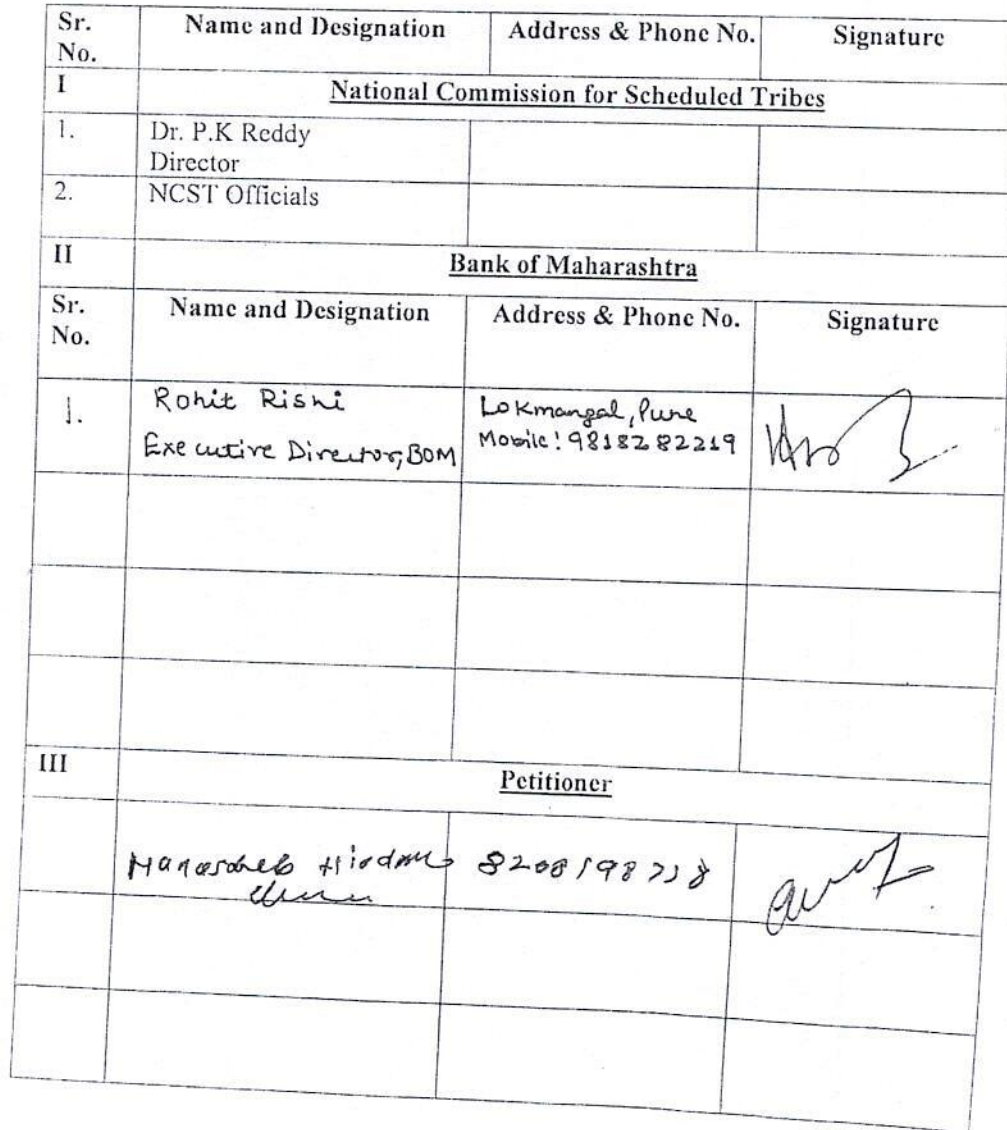 Sr. No. Name and Designation Address & Phone No. Signature
I National Commission for Scheduled Tribes
1. Dr. P.K Reddy
Director
2. NCST Officials
II Bank of Maharashtra
Sr. No. Name and Designation Address & Phone No. Signature
1. Rohit Rishi Lokmangal, Pune
Executive Director, BOM Mobile: 9818282219
III Petitioner